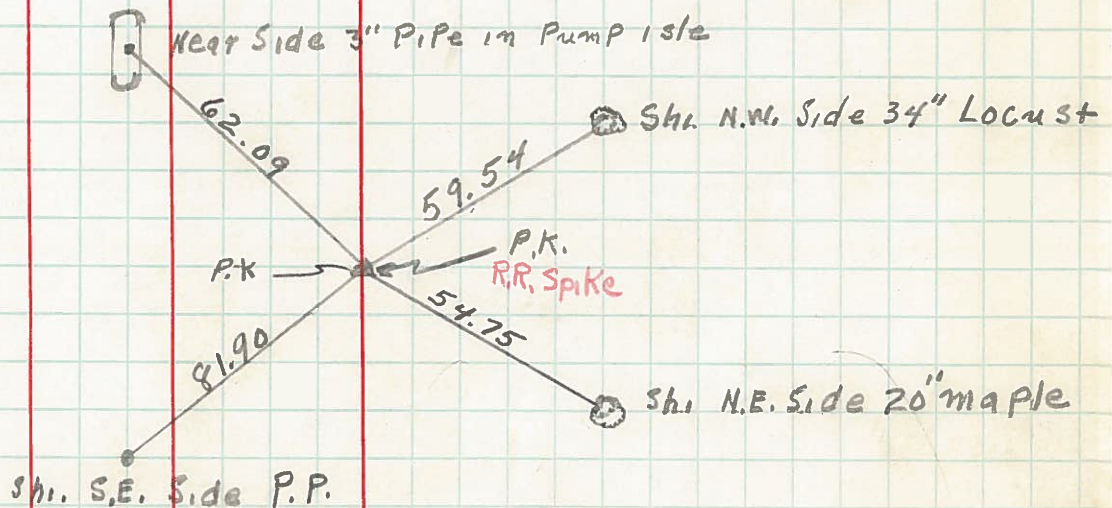 Near Side 3" Pipe in Pump isle
62.09
Shi. N.W. Side 34" Locust
59.54
P.K.
P.K
R.R. Spike
54.75
81.90
Shi. N.E. Side 20" maple
Shi. S.E. Side P.P.